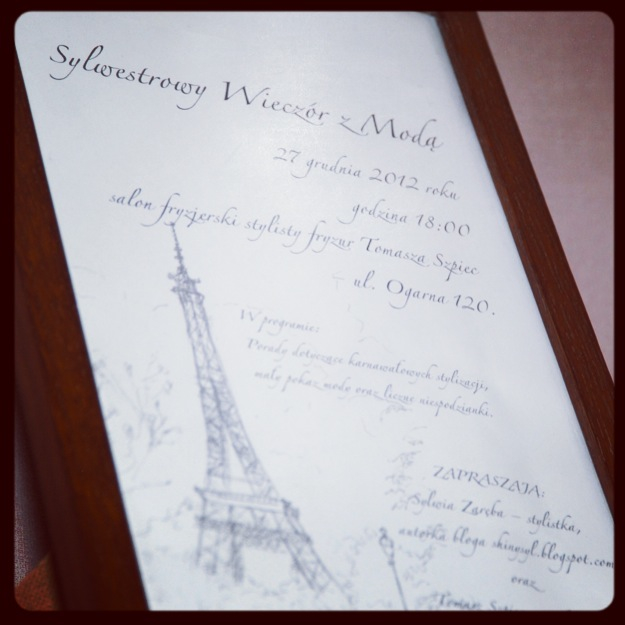 Sylwestrowy Wieczór z Modą
27 grudnia 2012 roku
godzina 18:00
salon fryzjerski stylisty fryzur Tomasza Szpiec
ul. Ogarna 120.
W programie:
Porady dotyczące karnawałowych stylizacji,
mały pokaz mody oraz liczne niespodzianki.
ZAPRASZAJĄ:
Sylwia Zaręba – stylistka,
autorka bloga shinysyl.blogspot.com
oraz
Tomasz